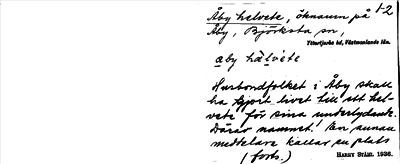 Åby helvete, öknamn på 1-2
Åby, Björksta sn,
Yttertjurbo hd, Västmanlands län.
åby hälvete
Husbondfolket i Åby skall
ha gjort livet till ett hel-
vete för sina underlydande.
Därav namnet. En annan
meddelare kallar en plats
(forts.) HARRY STÅHL 1936.